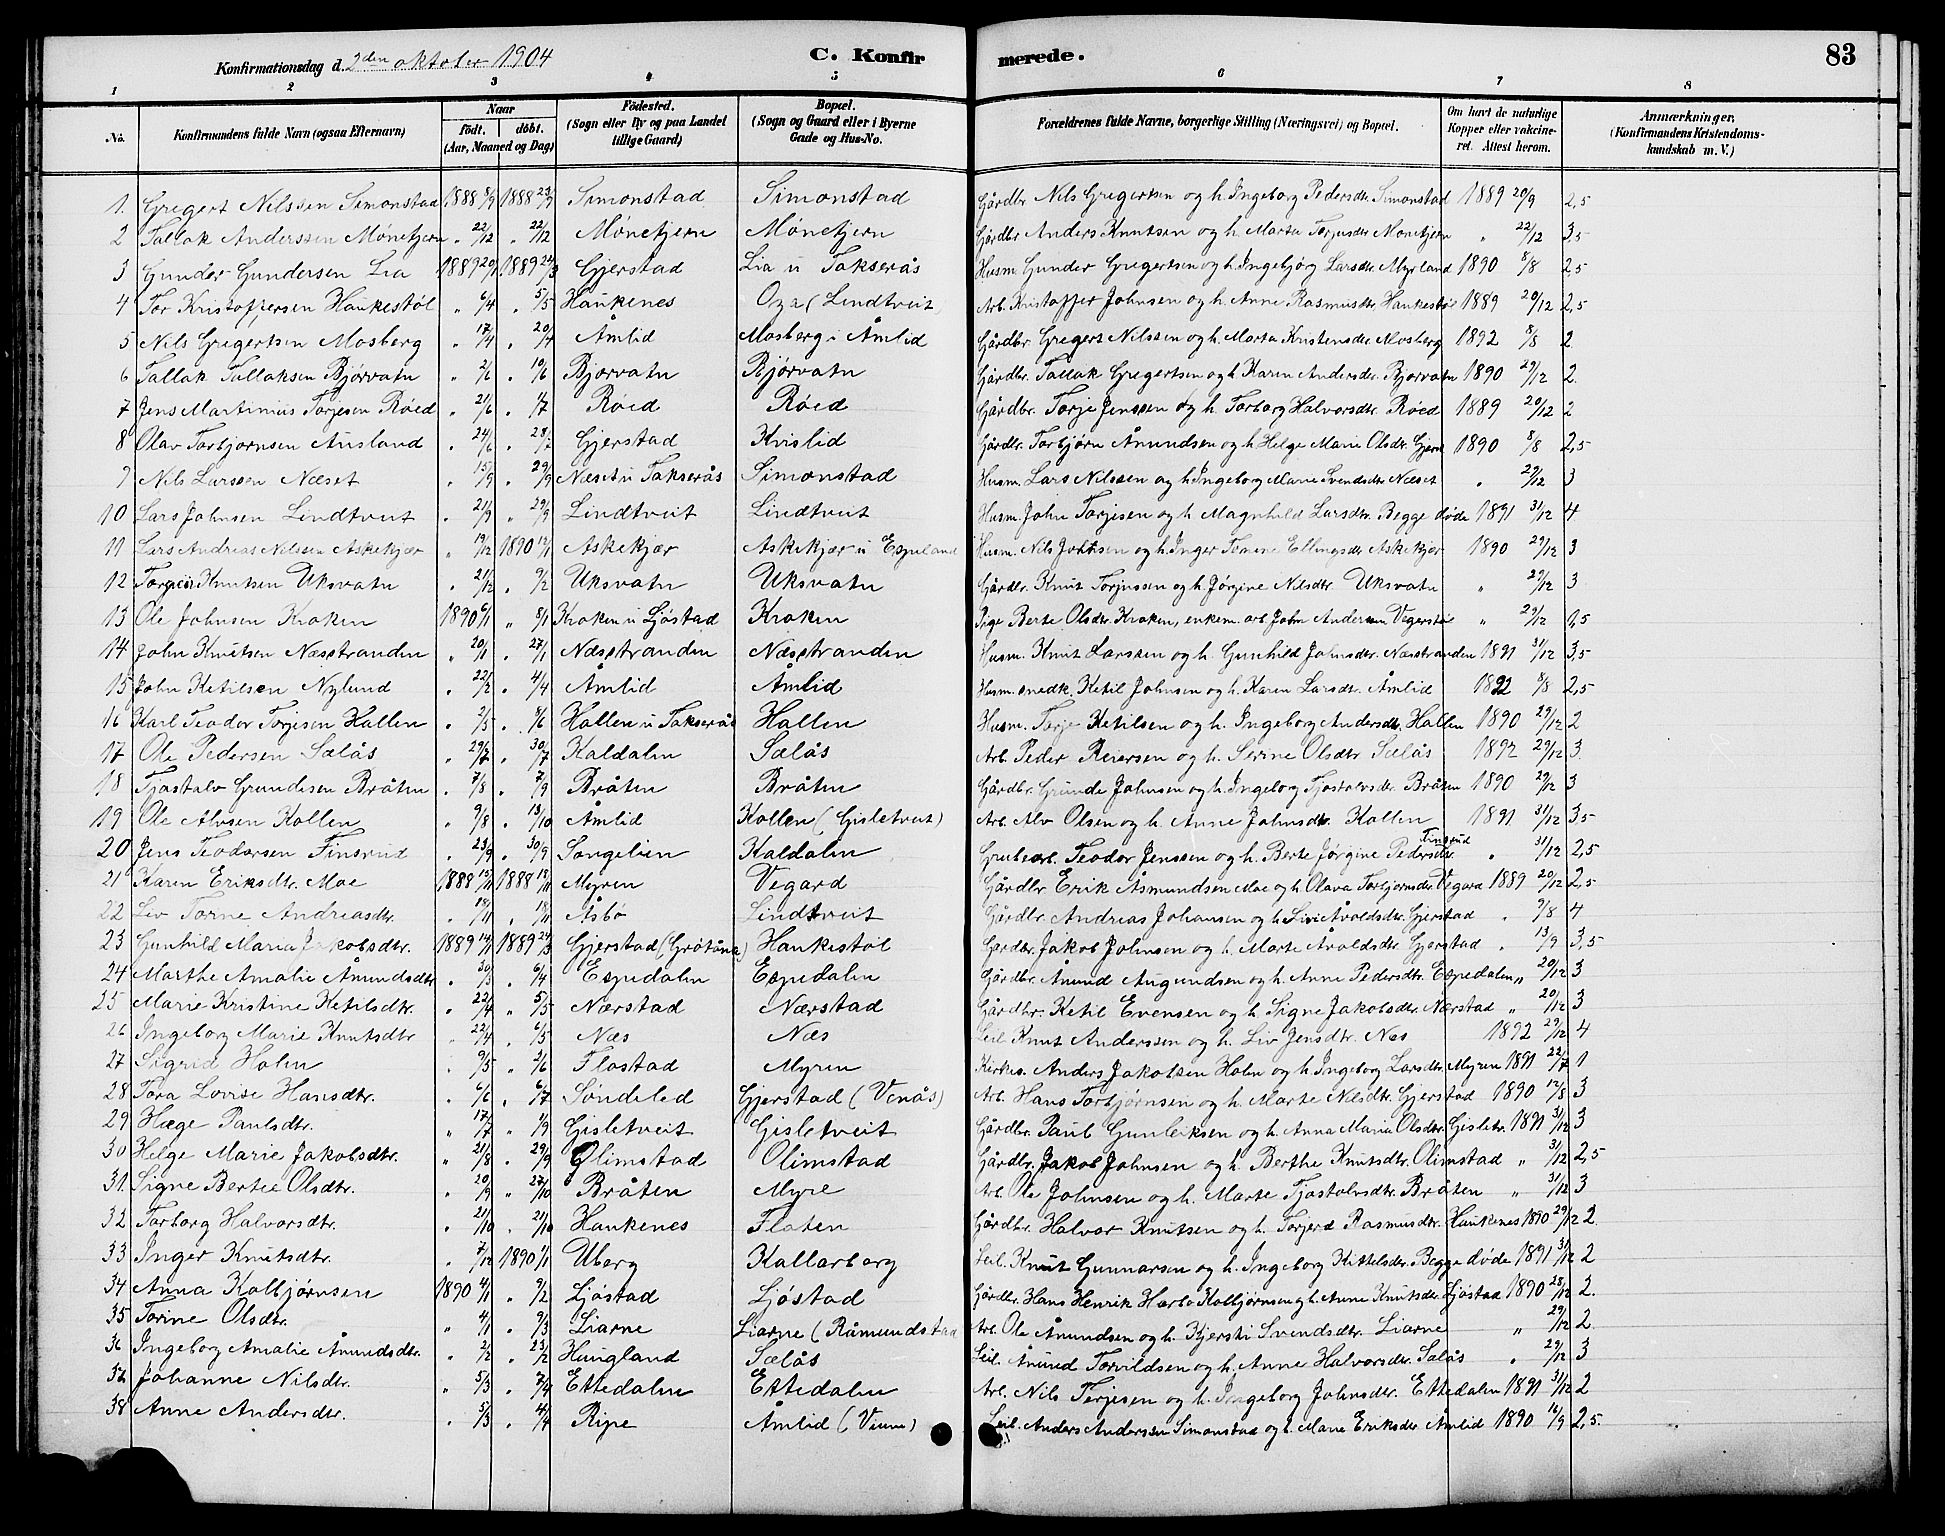 Konfirmationsdag d. 2den oktober 1904 C. Konfirmerede. 83
1 2 3 4 5 6 7 8
No. Konfirmandens fulde Navn (ogsaa Efternavn) Naar født. døbt. (Aar, Maaned og Dag) Fødested. (Sogn eller By og paa Landet tillige Gaard) Bopæl. (Sogn og Gaard eller i Byerne Gade og Hus-No. Forældrenes fulde Navne, borgerlige Stilling (Næringsvei) og Bopæl. Om havt de naturlige Kopper eller vakcineret. Attest herom. Anmærkninger. (Konfirmandens Kristendomskundskab m. V.)
1. Gregert Nilssen Simonstad 1888 8/9 1888 23/9 Simonstad Simonstad Gårdbr. Nils Gregertsen og h. Ingeborg Pedersdtr. Simonstad 1889 20/9 2,5
2 Tallak Anderssen Mönetjern " 22/12 " 22/12 Mönetjern Mönetjern Gårdbr Anders Knutsen og h. Marta Torjusdtr Mönetjern " 22/12 3,5
3 Gunder Gundersen Lia 1889 20/1 1889 24/3 Gjerstad Lia u Takserås Husm. Gunder Gregertsen og h. Ingebjørg Larsdtr. Myrland 1890 8/8 2,5
4 Tor Kristoffersen Haukestøl " 6/4 " 5/5 Haukenes Oza (Lindtveit) Arb. Kristoffer Johnsen og h. Anne Rasmusdtr. Haukestøl 1889 20/12 2,5
5 Nils Gregertsen Mosberg " 17/4 " 20/4 Åmlid Mosberg i Åmlid Gårdbr. Gregert Nilssen og h. Marta Kristensdtr. Mosberg 1892 8/8 2
6 Tallak Tallaksen Bjørvatn " 2/6 " 10/6 Bjørvatn Bjørvatn Gårdbr. Tallak Gregertsen og h Karen Andersdtr. Bjørvatn 1890 29/12 2.
7 Jens Martinius Torjesen Røed " 21/6 " 1/7 Røed Røed Gårdbr. Torje Jenssen og h. Torborg Halvorsdtr. Røed 1889 20/12 2
8 Olav Torbjørnsen Ausland " 24/6 " 28/7 Gjerstad Kvislid Gårdbr. Torbjørn Ånundsen og h. Helge Marie Olsdtr. Gjern 1890 8/8 2,5
9 Nils Larssen Næset " 15/9 " 29/9 Næset u Takserås Simonstad Husm. Lars Nilssen og h. Ingeborg Marie Svendsdtr Næset " 29/12 3
10 Lars Johnsen Lindtveit " 21/9 " 29/9 Lindtveit Lindtveit Husm. John Torjesen og h. Magnhild Larsdtr. Begge døde 1891 31/12 4
11 Lars Andreas Nilssen Askekjær " 19/12 1890 12/1 Askekjær Askekjær u Espeland Husm. Nils Johnsen og h. Inger Tomine Ellingsdtr Askekjær 1890 29/12 3
12 Torgius Knutsen Uksvatn " 21/12 " 9/2 Uksvatn Uksvatn Gårdbr. Knut Torjussen og h. Jørgine Nilsdtr. Uksvatn " 29/12 3
13 Ole Johnsen Kroken 1890 6/1 " 8/1 Kroken u Ljøstad Kroken Pige Berte Olsdtr. Kroken, enkem. arb. John Andersen Vegerstøl " 29/12 1,5
14 John Knutsen Næsstranden " 20/1 " 27/1 Næsstranden Næsstranden Husm. Knut Larssen og h. Gunhild Johnsdtr. Næsstranden 1891 31/12 3,5
15 John Ketilsen Nylund " 22/2 " 4/4 Åmlid Åmlid Husm. snedk. Ketil Johnsen og h. Karen Larsdtr. Åmlid 1892 8/8 2,5
16 Karl Teodor Torjesen Hallen " 2/5 " 8/6 Hallen u Takserås Hallen Husm. Torje Ketilsen og h. Ingeborg Andersdtr. Hallen 1890 29/12 2
17 Ole Pedersen Sælås " 29/7 " 30/7 Kaldalen Sælås Arb. Peder Reiersen og h. Serine Olsdtr. Sælås 1892 29/12 3
18 Tjøstolv Grundesen Bråten " 7/8 " 7/9 Bråten Bråten Gårdbr. Grunde Johnsen og h. Ingeborg Tjøstolvsdtr. Bråten 1890 29/12 3
19 Ole Alvsen Kollen " 9/8 " 13/10 Åmlid Kollen (Gisletveit) Arb. Alv Olsen og h. Anne Johnsdtr. Kollen 1891 31/12 3,5
20 Jens Teodorsen Finsrud " 23/9 " 30/9 Songelien Kaldalen Grubearb. Teodor Jenssen og h. Berte Jørgine Pedersdtr. Finsrud " 31/12 2,5
21 Karen Eriksdtr. Moe 1888 15/11 1888 19/11 Myren Vegard Gårdbr. Erik Åsmundsen Moe og h Olava Torbjørnsdtr. Vegard 1889 20/12 2,5
22 Liv Torne Andreasdtr. " 18/11 " 18/11 Åsbø Lindtveit Gårdbr. Andreas Johansen og h. Livi Åvoldsdtr. Gjerstad " 9/8 4
23 Gunhild Maria Jakobsdtr. 1889 14/1 1889 24/3 Gjerstad (Grøtåna) Haukestøl Gårdbr. Jakob Johnsen og h. Marte Åvoldsdtr Gjerstad " 13/9 3,5
24 Marthe Amalie Ånundsdtr " 30/3 " 6/4 Espedalen Espedalen Gårdbr. Ånund Augundsen og h. Anne Pedersdtr. Espedalen " 20/12 3
25 Marie Kristine Ketilsdtr. " 22/4 " 5/5 Nærstad Nærstad Gårdbr. Ketil Evensen og h. Signe Jakobsdtr. Nærstad " 20/12 3
26 Ingeborg Marie Knutsdtr " 22/4 " 6/5 Næs Næs Leil. Knut Anderssen og h. Liv Jensdtr. Næs 1892 29/12 4
27 Sigrid Holm " 9/5 " 2/6 Flostad Myren Kirkes. Anders Jakobsen Holm og h Ingeborg Larsdtr. Myren 1891 22/7 1
28 Tora Lovise Hansdtr. " 6/6 " 6/7 Søndeled Gjerstad (Venås) Arb. Hans Torbjørnsen og h. Marte Nilsdtr. Gjerstad 1890 12/8 3
29 Hæge Paulsdtr. " 17/7 " 1/9 Gisletveit Gisletveit Gårdbr. Paul Gunleiksen og h. Anna Maria Olsdtr. Gisletv. 1891 31/12 3
30 Helge Marie Jakobsdtr. " 21/8 " 29/9 Olimstad Olimstad Gårdbr. Jakob Johnsen og h. Berthe Knutsdtr. Olimstad " 31/12 2,5
31. Signe Bertie Olsdtr. " 20/9 " 27/10 Bråten Myre Arb. Ole Johnsen og h. Marte Tjøstolvsdtr. Bråten " 31/12 3
32 Torborg Halvorsdtr. " 21/10 " 21/10 Haukenes Flaten Gårdbr. Halvor Knutsen og h. Torjerd Rasmusdtr. Haukenes 1890 29/12 2.
33 Inger Knutsdtr. " 7/12 1890 1/1 Uberg Kallarberg Leil. Knut Gunnarsen og h. Ingeborg Kittelsdtr. Begge døde 1891 31/12 2
34 Anna Kolbjørnsen 1890 4/1 " 9/2 Ljøstad Ljøstad Gårdbr. Hans Henrik Harbo Kolbjørnsen og h. Anne Knutsdtr. Ljøstad 1890 28/12 2.
35 Torine Olsdtr. " 4/1 " 9/3 Liarne Liarne (Råmundstad Arb. Ole Ånundsen og h. Kjersti Svendsdtr. Liarne " 29/12 2
36 Ingeborg Amalie Ånundsdtr. " 2/2 " 23/2 Haugland Sælås Leil. Ånund Torvildsen og h. Anne Halvorsdtr. Sælås " 29/12 3
37 Johanne Nilsdtr. " 5/3 " 7/4 Ettedalen Ettedalen Arb. Nils Terjesen og h. Ingeborg Johnsdtr. Ettedalen 1891 31/12 2
38 Anne Andersdtr. " 5/3 " 4/4 Ripe Åmlid (Vium) Leil. Anders Anderssen Simonstad og h. Marie Eriksdtr Åmlid 1890 16/9 2,5.